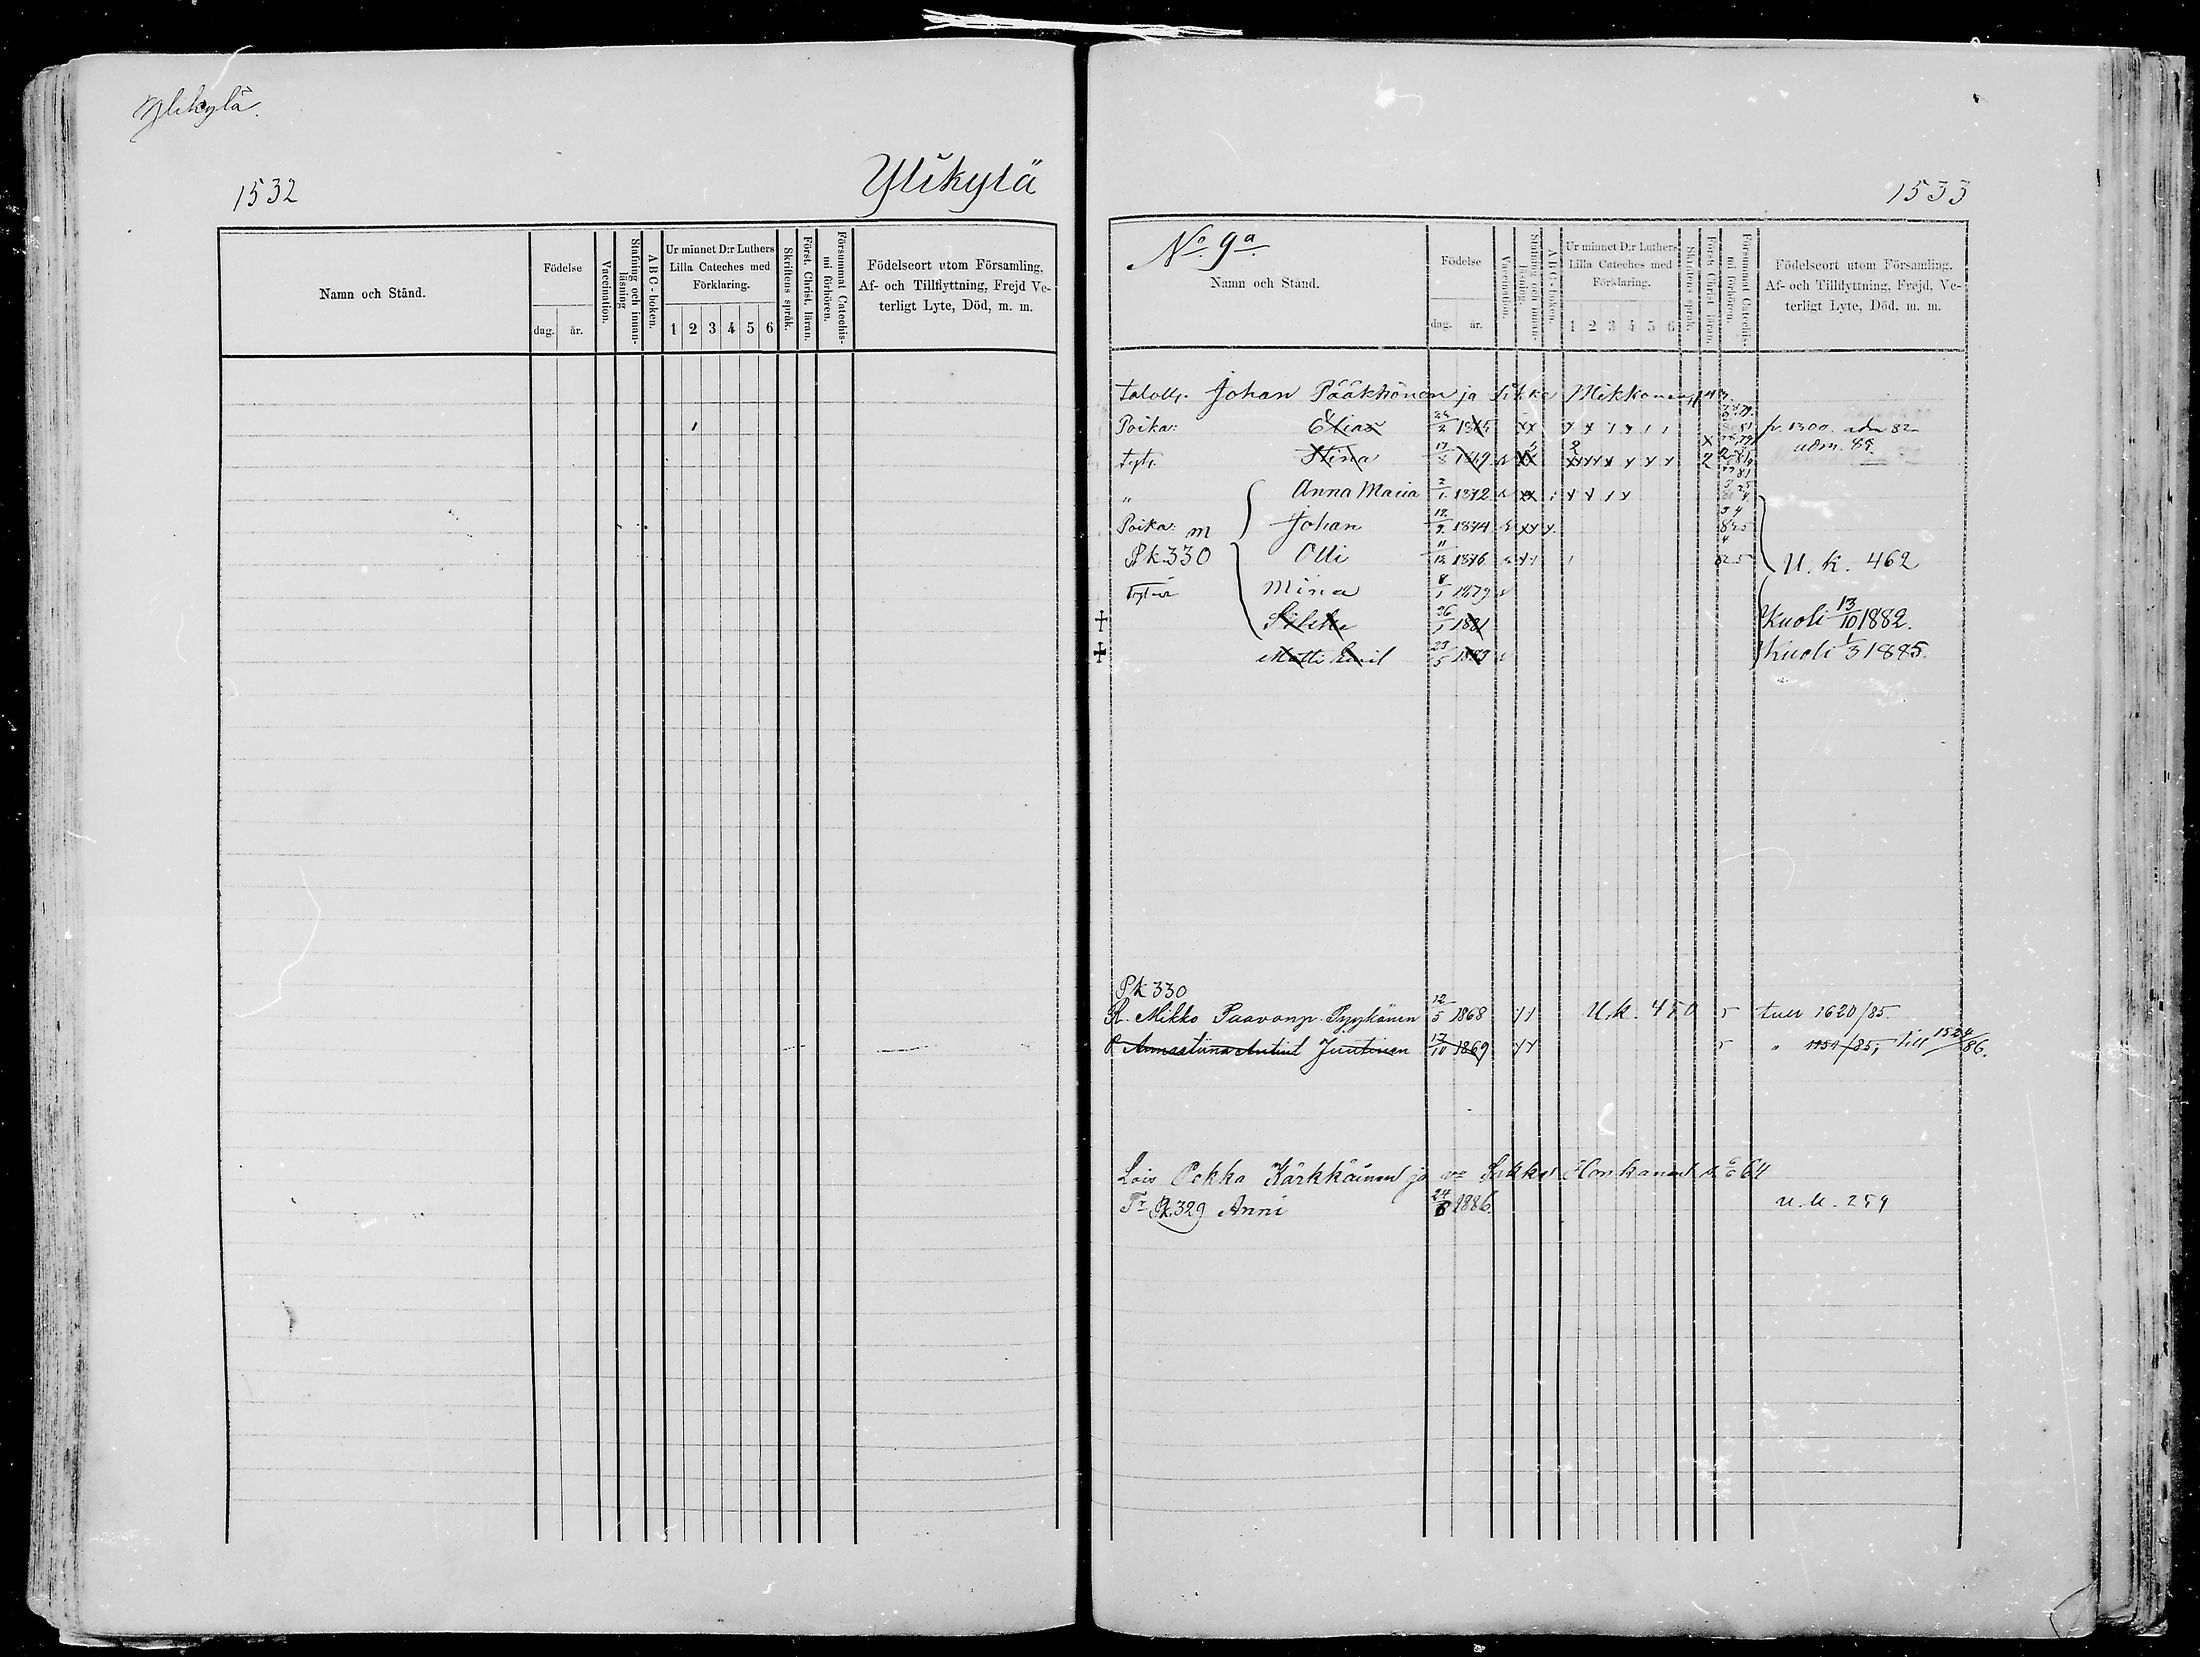 Ylikylä.
1532
Ylikylä
Namn och Stånd.
Födelse
dag. år.
Vaccination.
Stafning och innan-
läsning
A B C - boken.
Ur minnet D:r Luthers
Lilla Cateches med
Förklaring.
1 2 3 4 5 6
Skriftens språk.
Först. Christ. läran.
Försummat Catechis-
mi förhören.
Födelseort utom Församling,
Af- och Tillflyttning, Frejd Ve-
terligt Lyte, Död, m. m.
1533
No. 9a.
Namn och Stånd.
Födelse
dag. år.
Vaccination.
Stafning och innan-
läsning.
A B C - boken.
Ur minnet D:r Luthers
Lilla Cateches med
Förklaring.
1 2 3 4 5 6
Skriftens språk.
Först. Christ. läran.
Försummat Catechis-
mi förhören.
Födelseort utom Församling,
Af- och Tillflyttning, Frejd, Ve-
terligt Lyte, Död, m. m.
Johan Pääkkönen ja Mikkonen
Poika: Elias
Stina
" Anna Maria 2/1 1872
Poika: m Johan 1874
Pk. 330 Olli 11/12 1876 U. k. 462
Mina 8/1 1879
26/1 1881 Kuoli 13/10 1882.
Matti Emil 23/5 Kuoli 1/3 1885.
Pk 330
R. Mikko Paavonp. Pyykönen 12/5 1868 U.k. 450 1620/85
Juntinen 17/10 1869 " 1154/85, till 1524/86.
Lois Pekka Kärkkäinen ja Honkanen 64
Tr Pk. 329 Anni 24/8 1886. u. k. 259